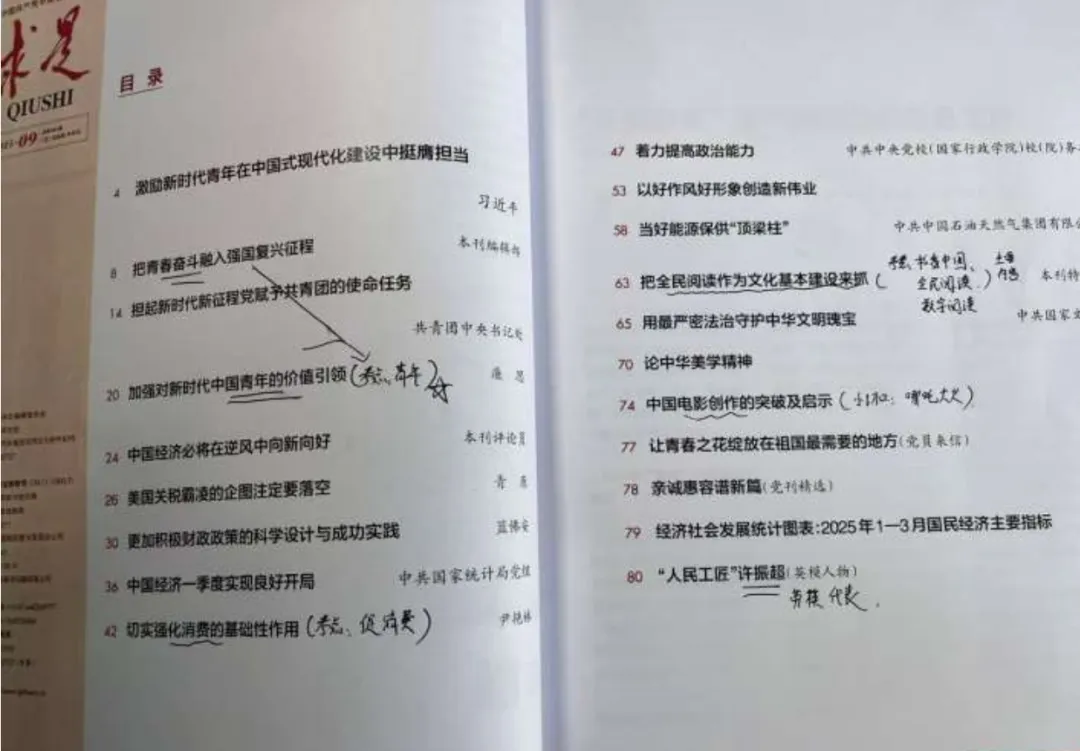 求是
QIUSHI
目录
4 激励新时代青年在中国式现代化建设中挺膺担当
习近平
8 把青春奋斗融入强国复兴征程
本刊编辑部
14 担起新时代新征程党赋予共青团的使命任务
共青团中央书记处
20 加强对新时代中国青年的价值引领(考点、青年) 廉思
24 中国经济必将在逆风中向新向好 本刊评论员
26 美国关税霸凌的企图注定要落空
30 更加积极财政政策的科学设计与成功实践 蓝佛安
36 中国经济一季度实现良好开局 中共国家统计局党组
42 切实强化消费的基础性作用(考点:促消费) 尹艳林
47 着力提高政治能力 中共中央党校(国家行政学院)校(院)务
53 以好作风好形象创造新伟业
58 当好能源保供“顶梁柱” 中共中国石油天然气集团有限
考点、书香中国、
全民阅读、)
数字阅读
63 把全民阅读作为文化基本建设来抓( 本刊特
65 用最严密法治守护中华文明瑰宝 中共国家文
70 论中华美学精神
74 中国电影创作的突破及启示(
77 让青春之花绽放在祖国最需要的地方(党员来信)
78 亲诚惠容谱新篇(党刊精选)
79 经济社会发展统计图表:2025年1—3月国民经济主要指标
80 “人民工匠”许振超(英模人物)
劳模代表.